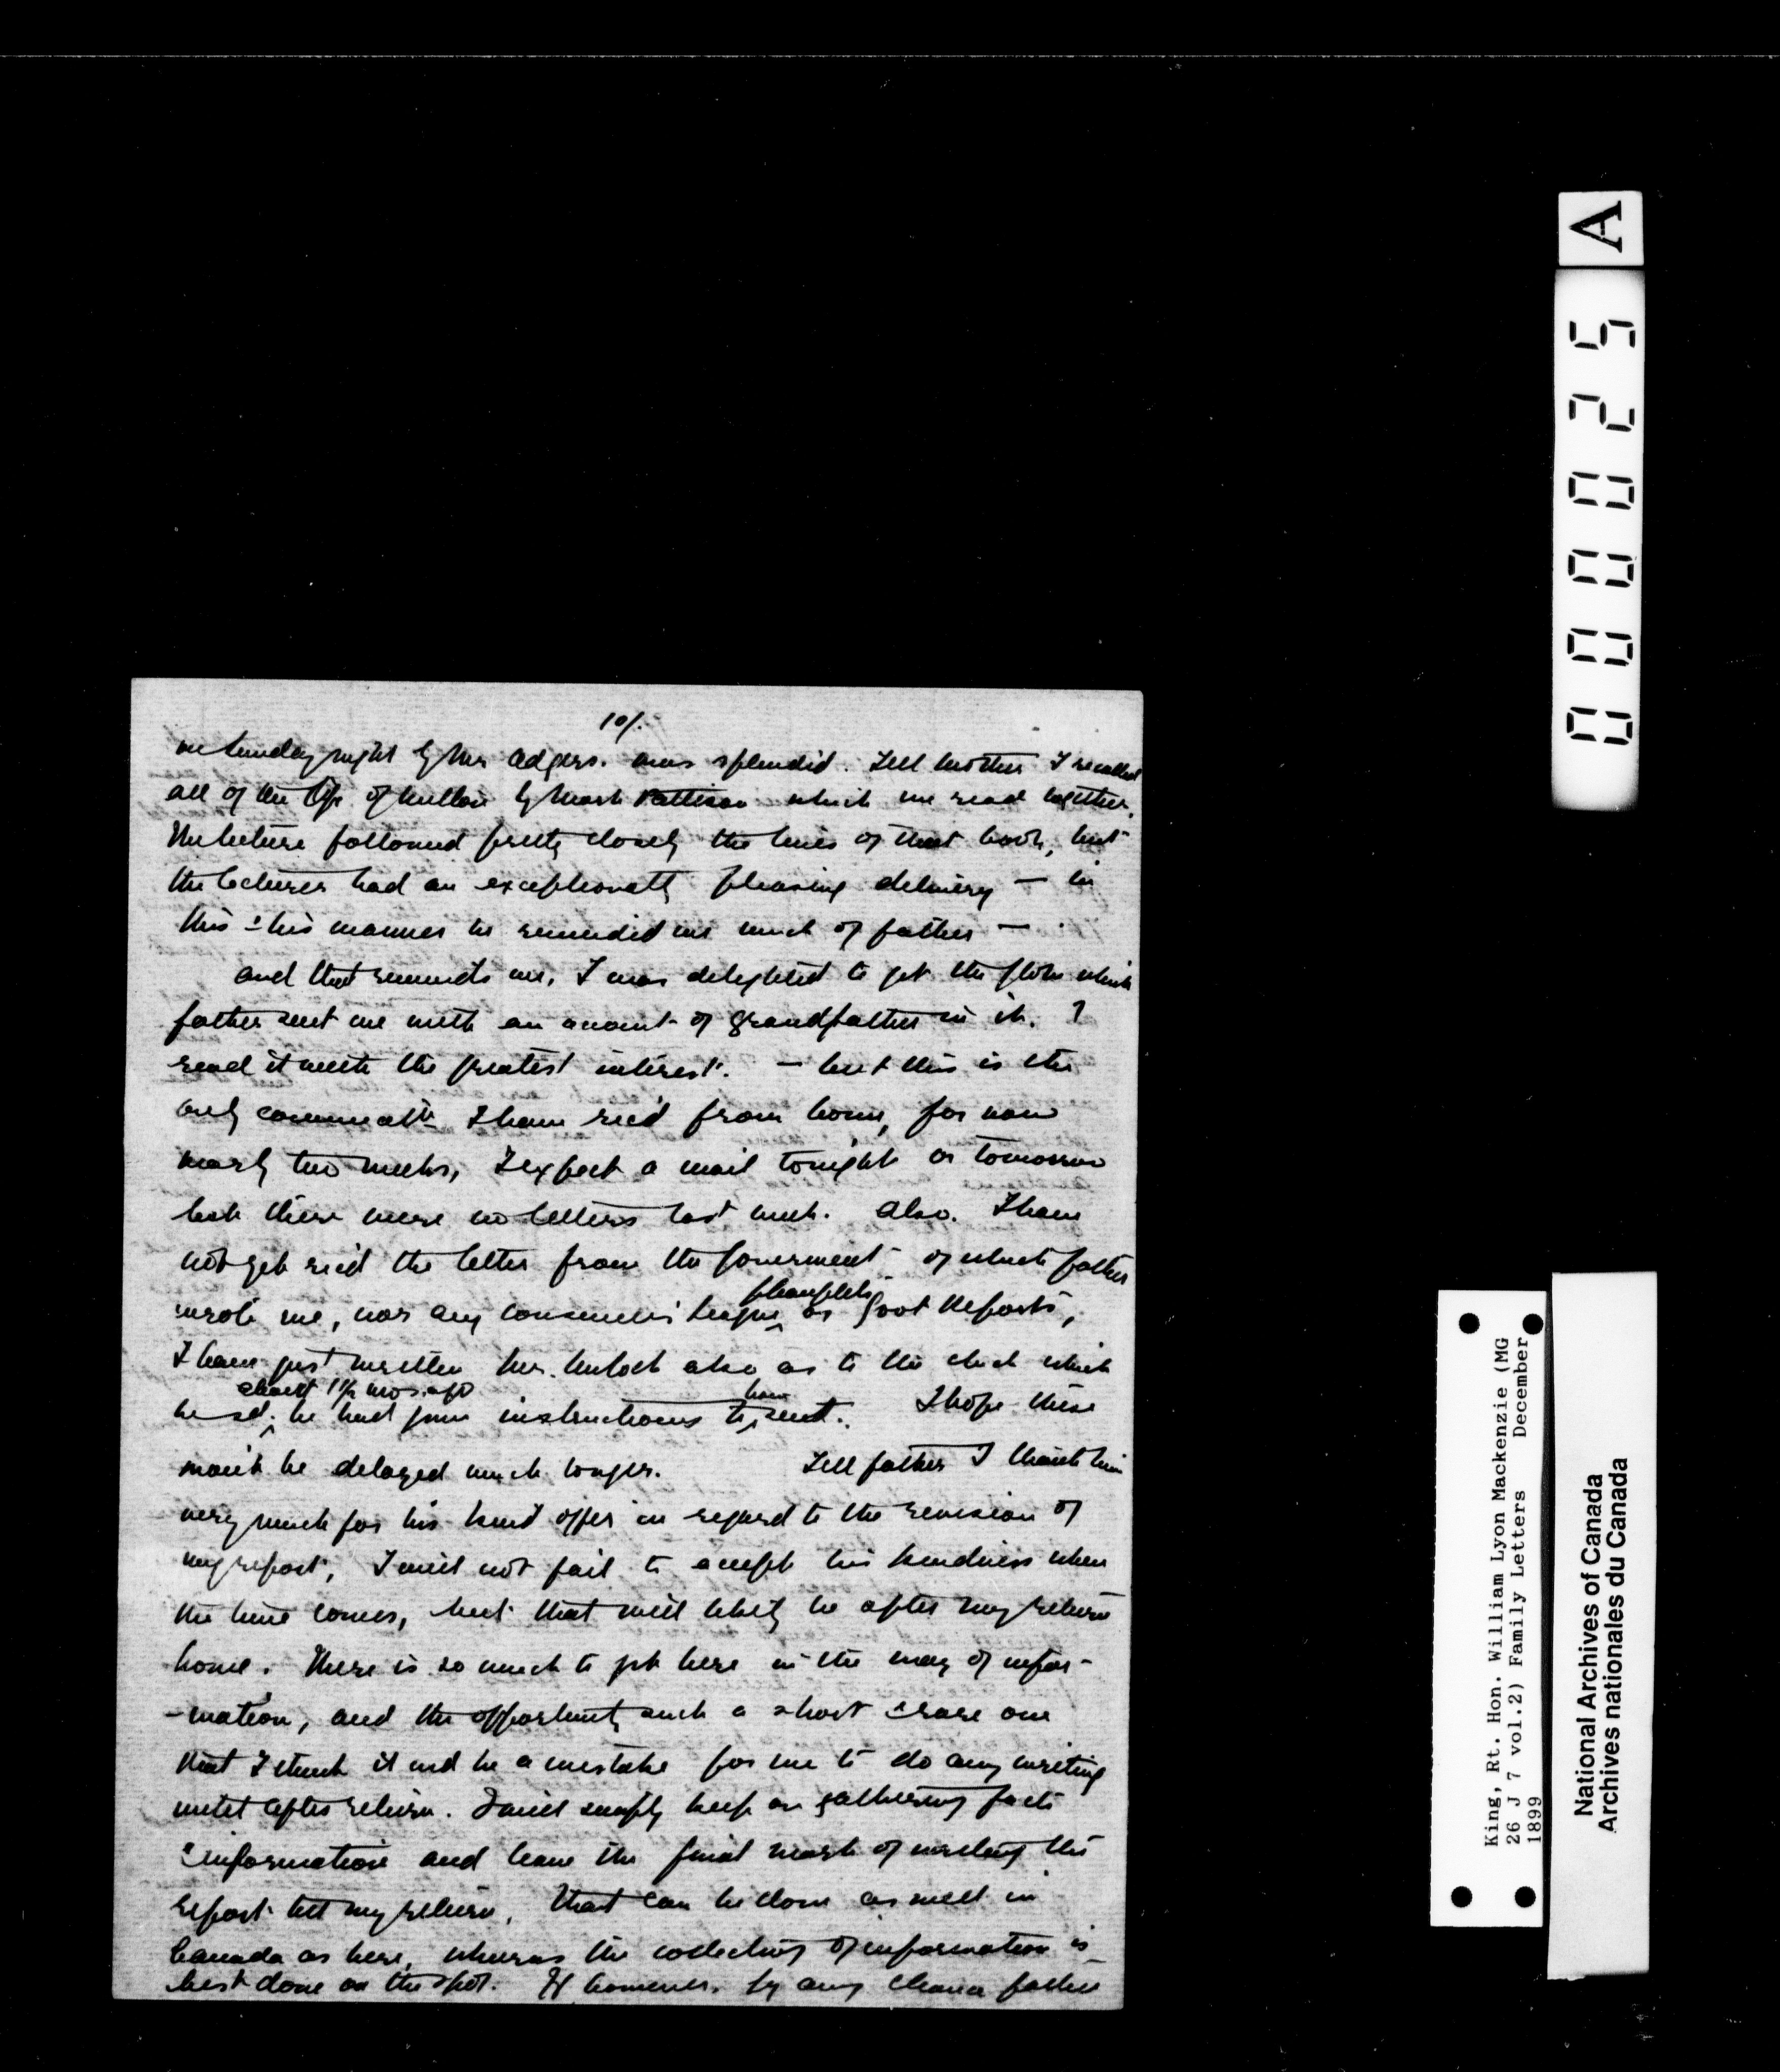 10/.
on Sunday night by Mr Adgers. was splendid. Tell mother I recalled
all of the life of Milton by Mark Pattison which we read together.
The lecture followed pretty closely the lines of that book, but
the lecturer had an exceptionally pleasing delivery — in
this & his manner he reminded me much of father —
and that reminds me, I was delighted to get the Globe which
father sent me with an account of grandfather in it. I
read it with the greatest interest. — but this is the
only communictn I have rec'd from home, for now
nearly two weeks, I expect a mail tonight or tomorrow
but there were no letters last week. Also. I have
not yet rec'd the letter from the government of which father
pamphlets
wrote me, nor any consumers' League or Govt Reports,
I have just written Mr. Mulock also as to the check which
about 1½ mos. ago
have
he sd. he had given instructions to sent. I hope these
won't be delayed much longer. Tell father I thank him
very much for his kind offer in regard to the revision of
my report, I will not fail to accept his kindness when
the time comes, but that will likely be after my return
home. There is so much to get here in the way of infor-
-mation, and the opportunity such a short & rare one
that I think it wd be a mistake for me to do any writing
until after return. I will simply keep on gathering facts
& information and leave the final work of writing the
report till my return, that can be done as well in
Canada as here, whereas the collecting of information is
best done on the spot. If however, by any chance father
A
000025
King, Rt. Hon. William Lyon Mackenzie (MG
26 J 7 vol.2) Family Letters December
1899
National Archives of Canada
Archives nationales du Canada